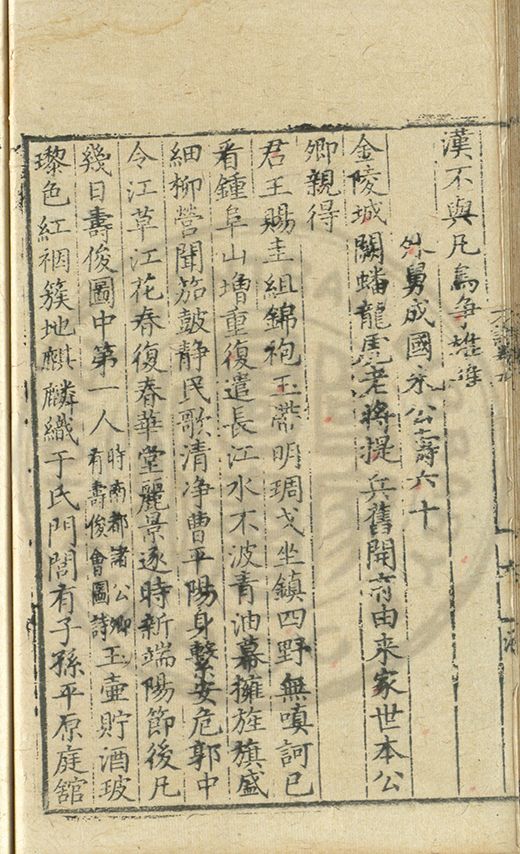 漢不與凡鳥争雄雌
外舅成國朱公壽六十
金陵城闕蟠龍虎老將提兵舊開府由来家世本公
卿親得
君王賜圭組錦袍玉帶明琱戈坐鎮四野無嗔訶已
看鍾阜山增重復遣長江水不波青油幕擁旌旗盛
細柳營聞笳鼓靜民歌清净曹平陽身繫安危郭中
令江草江花春復春華堂麗景逐時新端陽節後凡
幾日壽俊圖中第一人時南都諸公卿有壽俊會圖詩玉壺貯酒玻
瓈色紅裀簇地麒麟織于氏門閭有子孫平原庭舘